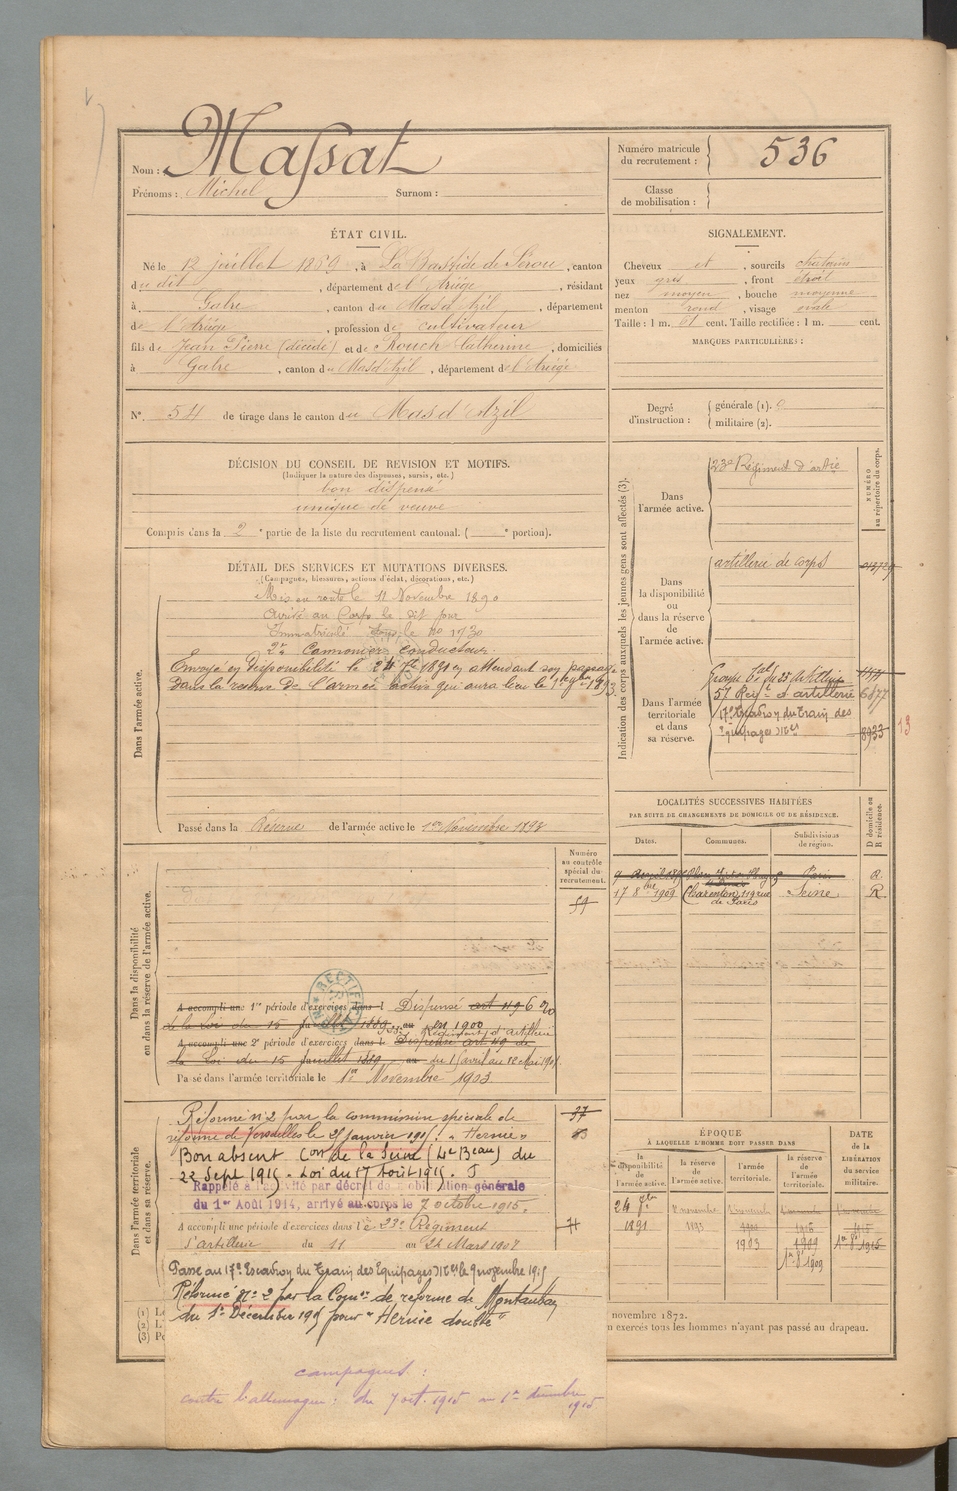 Nom : Massat
Prénoms : Michel Surnom :
Numéro matricule du recrutement : 536
Classe de mobilisation :
ÉTAT CIVIL.
Né le 12 juillet 1869, à La Bastide de Sérou, canton
du dit, département de l'Ariège, résidant
à Gabre, canton du Mas d'Azil, département
de l'Ariège, profession de cultivateur
fils de Jean Pierre (décédé) et de Rouch Catherine, domiciliés
à Gabre, canton du Mas d'Azil, département de l'Ariège
N° 54 de tirage dans le canton du Mas d'Azil
SIGNALEMENT.
Cheveux et, sourcils châtains
yeux gris, front étroit
nez moyen, bouche moyenne
menton rond, visage ovale
Taille : 1 m. 61 cent. Taille rectifiée : 1 m. cent.
MARQUES PARTICULIÈRES :
Degré d'instruction : générale (1).
militaire (2).
DÉCISION DU CONSEIL DE REVISION ET MOTIFS.
(Indiquer la nature des dispenses, sursis, etc.)
bon dispensé
unique de veuve
Compris dans la 2e partie de la liste du recrutement cantonal. ( e portion).
DÉTAIL DES SERVICES ET MUTATIONS DIVERSES.
(Campagnes, blessures, actions d'éclat, décorations, etc.)
Dans l'armée active.
Mis en route le 11 Novembre 1890
Arrivé au Corps le dit jour
Immatriculé sous le no 1730
2e Canonnier conducteur.
Envoyé en disponibilité le 24 7bre 1891 en attendant son passage
Dans la réserve de l'armée active qui aura lieu le 1er 9bre 1893
Passé dans la Réserve de l'armée active le 1er Novembre 1893
Indication des corps auxquels les jeunes gens sont affectés (3).
NUMÉRO au répertoire du corps.
Dans l'armée active.
23e Régiment d'artie
Dans la disponibilité ou dans la réserve de l'armée active.
artillerie de corps
Dans l'armée territoriale et dans sa réserve.
57 Regt d'artillerie 6877
17e Escadron du Train des
Equipages Mres 8933
13
LOCALITÉS SUCCESSIVES HABITÉES
PAR SUITE DE CHANGEMENTS DE DOMICILE OU DE RÉSIDENCE.
Dates. Communes. Subdivisions de région. D domicile ou R résidence.
Paris R
17 8bre 1909 Charenton, 119 rue de Paris Seine R
Dans la disponibilité ou dans la réserve de l'armée active.
Numéro au contrôle spécial du recrutement.
59
RECTIFIÉ
A accompli une 1re période d'exercices dans l Dispensé art 49 6
de la loi du 15 Juillet 1889 en 1900
Régiment d'artillerie
A accompli une 2e période d'exercices dans le Dispensé art 49 de
la Loi du 15 Juillet 1889 au du 15 avril au 12 Mai 190
Passé dans l'armée territoriale le 1er Novembre 1903
Dans l'armée territoriale et dans sa réserve.
Réformé n° 2 par la commission spéciale de 37
réforme de Versailles le 25 janvier 1915 "Hernie" 83
Bon absent Con de la Seine (4e Beau) du
22 Sept 1915 - Loi du 17 Août 1915.
Rappelé à l'activité par décret de mobilisation générale
du 1er Août 1914, arrivé au corps le 7 octobre 1915.
A accompli une période d'exercices dans le 23e Régiment
d'artillerie du 11 au 24 Mars 1908
Passé au 17e Escadron du Train des Equipages Mres le 9 novembre 1915
Réformé n° 2 par la Comon de réforme de Montauban
du 1er Décembre 1915 pour "Hernie double"
campagnes :
contre l'allemagne : du 7 oct. 1915 au 1er décembre
1915
ÉPOQUE
À LAQUELLE L'HOMME DOIT PASSER DANS
DATE de la LIBÉRATION du service militaire.
la disponibilité de l'armée active. la réserve de l'armée active. l'armée territoriale. la réserve de l'armée territoriale.
24 7bre 1891
1er novembre 1893
1903
1909
1er 8bre 1909
1er 8bre 1915
novembre 1872.
n exercés tous les hommes n'ayant pas passé au drapeau.
(1)
(2)
(3)